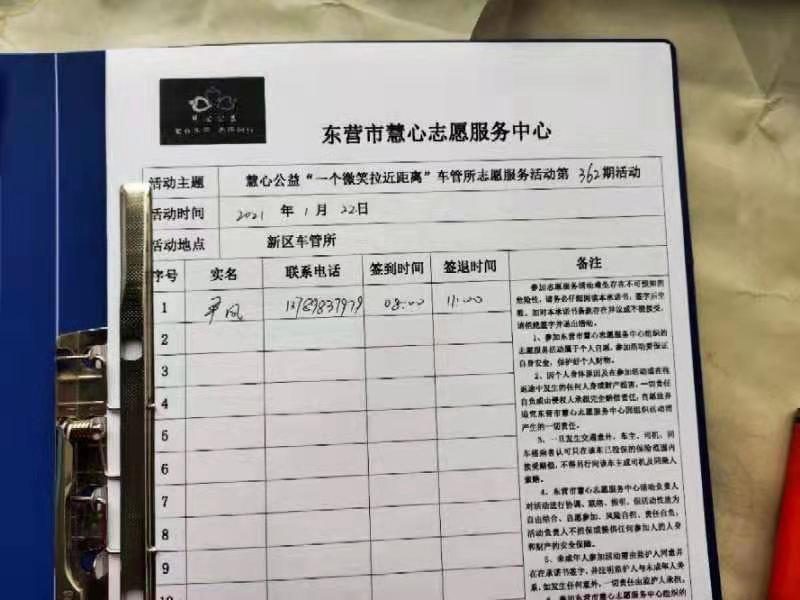 东营市慧心志愿服务中心
活动主题 慧心公益“一个微笑拉近距离”车管所志愿服务活动第 362期活动
活动时间 2021 年 1 月 22日
活动地点 新区车管所
序号 实名 联系电话 签到时间 签退时间 备注
1 08:00 11:00
2
3
4
5
6
7
8
9
10
参加志愿服务活动难免存在不可预知的
危险性，请务必仔细阅读本承诺书，签字后生
效。如对本承诺书条款存在异议或不能接受，
请拒绝签字并退出活动。
1、参加东营市慧心志愿服务中心组织的
志愿服务活动属于个人自愿，参加活动要保证
自身安全，保护好个人财物。
2、因个人身体原因及在参加活动或在往
返途中发生的任何人身或财产损害，一切责任
自负或由侵权人承担完全赔偿责任，自愿放弃
追究东营市慧心志愿服务中心因组织活动而
产生的一切责任。
3、一旦发生交通意外，车主、司机、同
车搭乘者认可只在该车已投保的保险范围内
接受赔偿，不得另行向该车主或司机及同乘人
索赔。
4、东营市慧心志愿服务中心活动负责人
对活动进行协调、联络、组织，但活动性质为
自由结合、自愿参加、风险自担、责任自负，
活动负责人不担保或提供任何参加人的人身
和财产的安全保障。
5、未成年人参加活动需由监护人同意并
在在承诺书签字，并注明监护人与未成年人关
系，如发生任何意外，一切责任由监护人承担。
东营市慧心志愿服务中心组织的